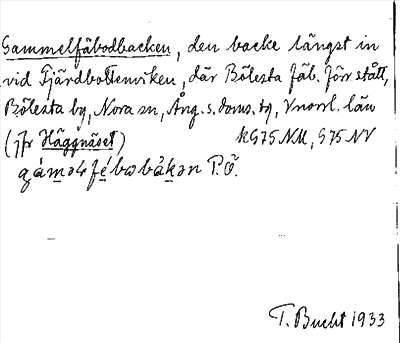 Gammelfäbodbacken, den backe längst in
vid Fjärdbottenviken, där Bölesta fäb. förr stått,
Bölesta by, Nora sn, Ång. s. doms. tg, Vnorrl. län
(jfr Häggnäset) kG75 NM, G75 NV
P. Ö.
T. Bucht 1933